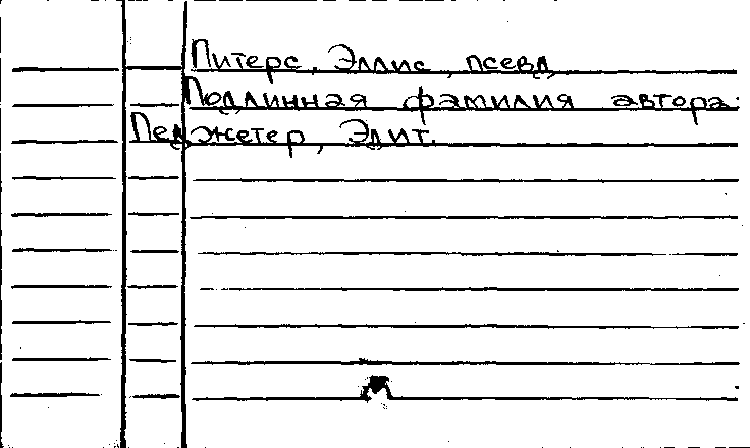 Питерс, Эллис, псевд
Подлинная фамилия автора:
Педжетер, Эдит.